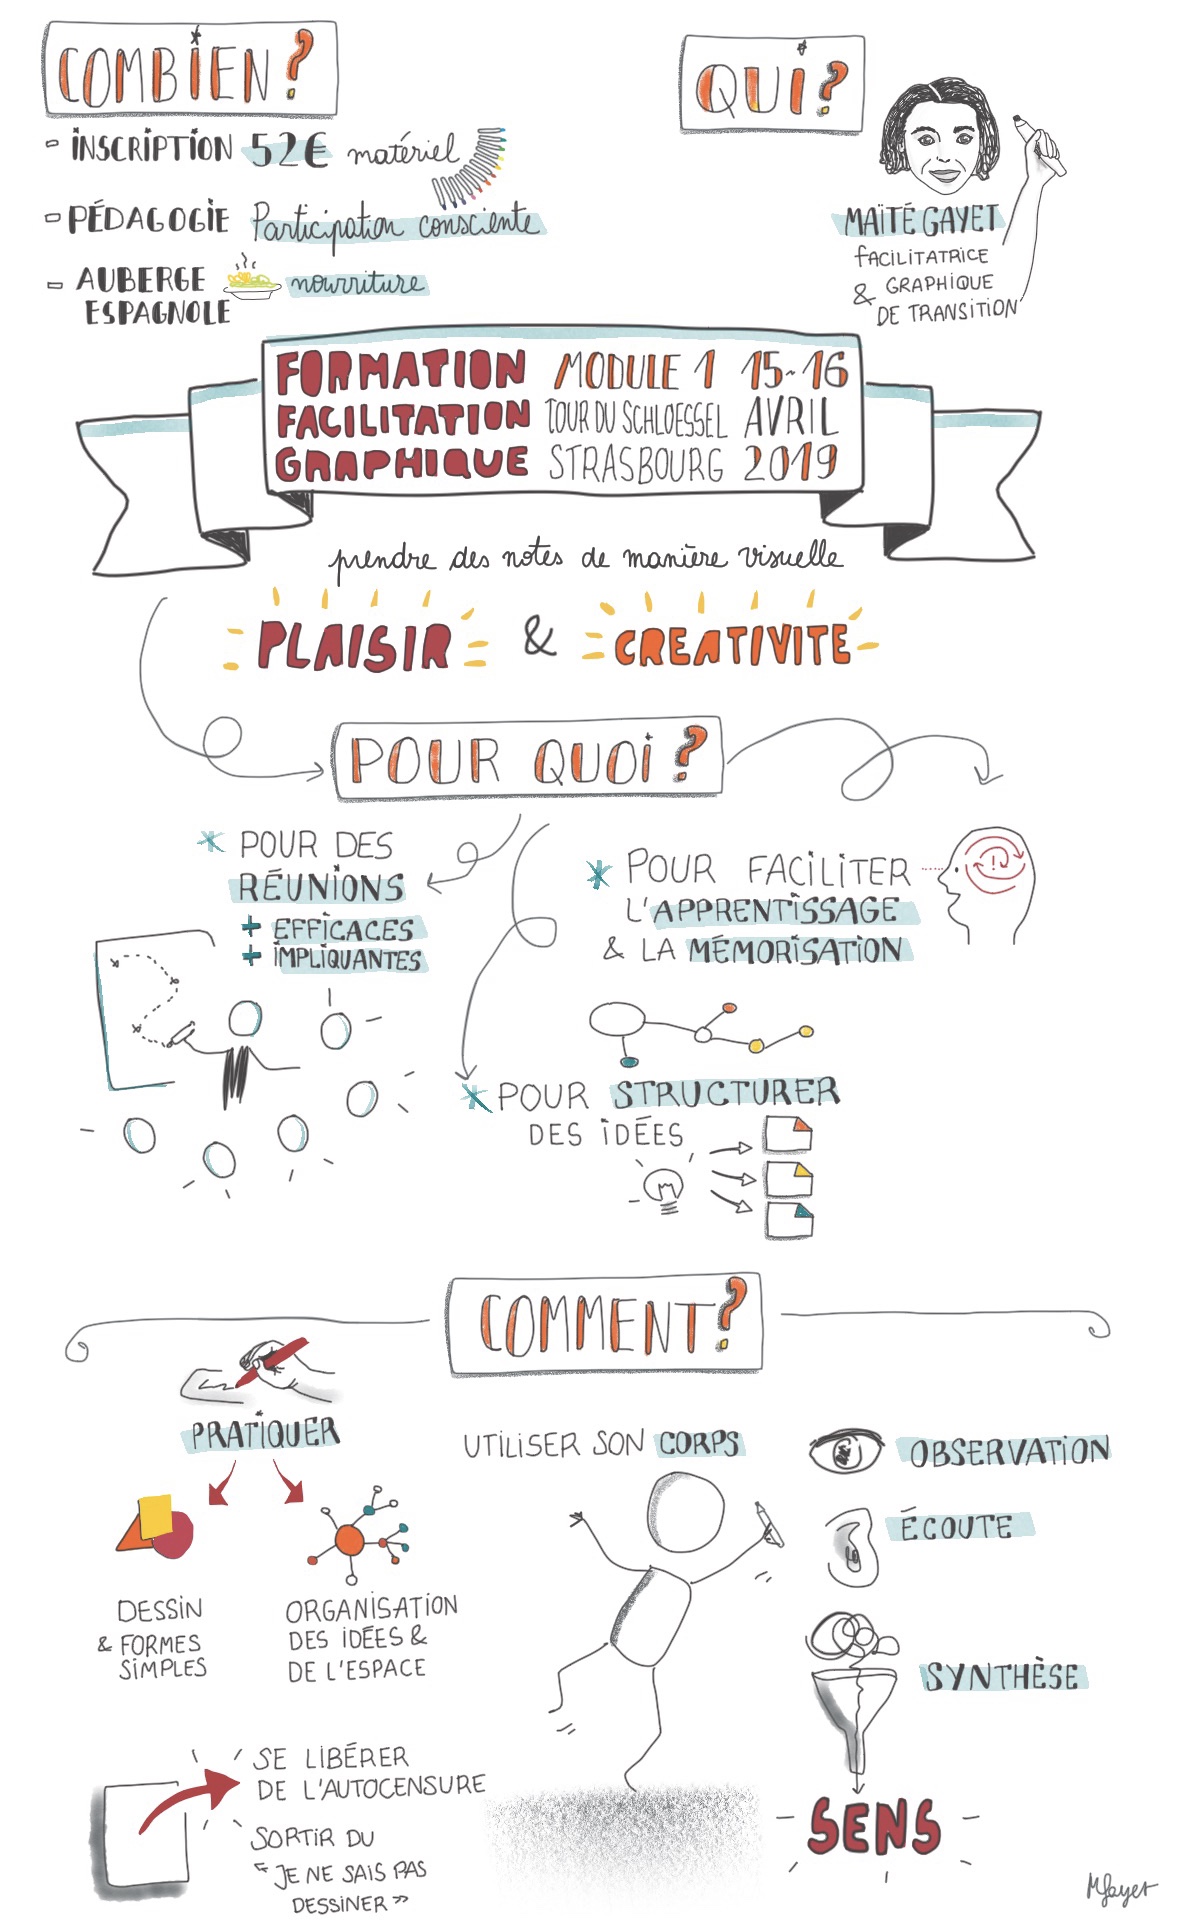 COMBIEN ?
- INSCRIPTION 52€ matériel
- PÉDAGOGIE Participation consciente
- AUBERGE ESPAGNOLE nourriture
QUI ?
MAÏTÉ GAYET
FACILITATRICE
GRAPHIQUE
& DE TRANSITION
FORMATION
FACILITATION
GRAPHIQUE
MODULE 1
TOUR DU SCHLOESSEL
STRASBOURG
15-16
AVRIL
2019
prendre des notes de manière visuelle
PLAISIR & CREATIVITE
POUR QUOI ?
* POUR DES
RÉUNIONS
+ EFFICACES
+ IMPLIQUANTES
* POUR FACILITER
L'APPRENTISSAGE
& LA MÉMORISATION
!
* POUR STRUCTURER
DES IDÉES
COMMENT ?
PRATIQUER
DESSIN
& FORMES
SIMPLES
ORGANISATION
DES IDÉES &
DE L'ESPACE
UTILISER SON CORPS
OBSERVATION
ÉCOUTE
SYNTHÈSE
SENS
SE LIBÉRER
DE L'AUTOCENSURE
SORTIR DU
"JE NE SAIS PAS
DESSINER"
MGayet